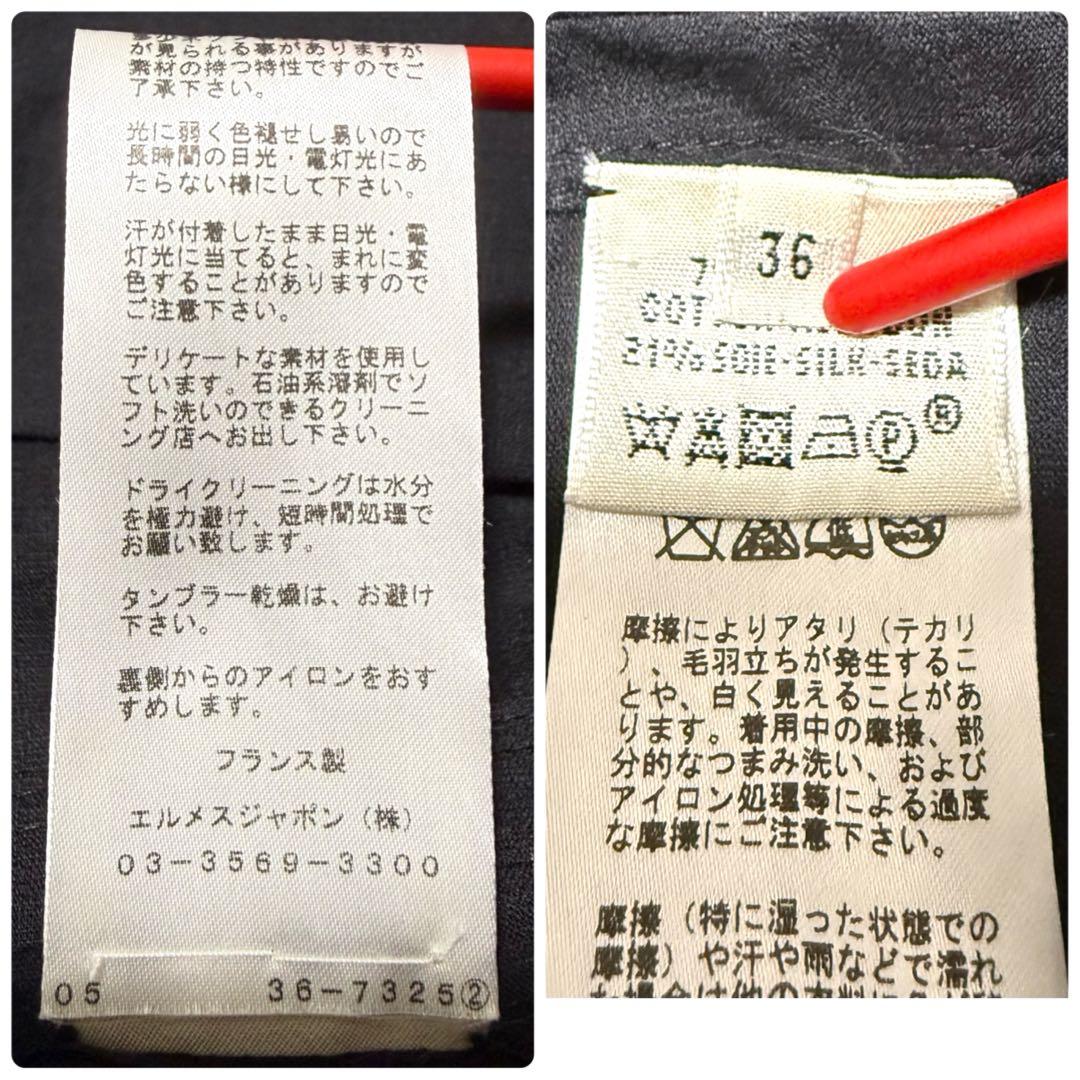 が見られる事がありますが
素材の持つ特性ですのでご
了承下さい。
光に弱く色褪せし易いので
長時間の日光・電灯光にあ
たらない様にして下さい。
汗が付着したまま日光・電
灯光に当てると、まれに変
色することがありますので
ご注意下さい。
デリケートな素材を使用し
ています。石油系溶剤でソ
フト洗いのできるクリーニ
ング店へお出し下さい。
ドライクリーニングは水分
を極力避け、短時間処理で
お願い致します。
タンブラー乾燥は、お避け
下さい。
裏側からのアイロンをおす
すめします。
フランス製
エルメスジャポン(株)
03-3569-3300
05 36-7325②
36
7
COT
21%SOIE-SILK-SEDA
P ®
低
摩擦によりアタリ(テカリ
)、毛羽立ちが発生するこ
とや、白く見えることがあ
ります。着用中の摩擦、部
分的なつまみ洗い、および
アイロン処理等による過度
な摩擦にご注意下さい。
摩擦(特に湿った状態での
摩擦)や汗や雨などで濡れ